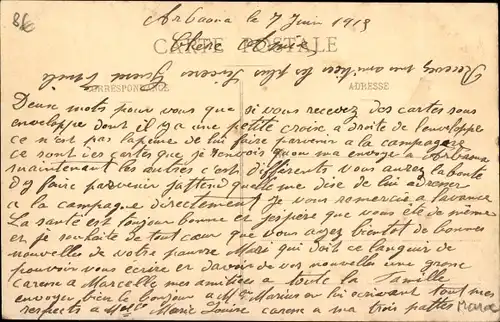 8E
Arbaoua le 7 Juin 1913
CARTE POSTALE
Chère Amie
Recevez mon amitiée la plus sincère
CORRESPONDANCE
ADRESSE
Deux mots pour vous que si vous recevez des cartes sous
enveloppe dont il y a une petite croix a droite de l'enveloppe
ce n'est pas la peine de lui faire parvenir a la campagne
ce sont des cartes que je renvois qu'on ma envoyé a Arbaoua
maintenant les autres c'est différents vous aurez la bonté
d'y faire parvenir j'attend quelle me dise de lui adresser
a la campagne directement Je vous remercie a l'avance
La santé est toujour bonne et j'espère que vous ete de même
et je souhaite de tout cœur que vous ayez bientot de bonnes
nouvelles de votre pauvre Mari qui doit ce languir de
pouvoir vous écrire et d'avoir de vos nouvelles une grosse
caresse a Marcelle mes amitiées a toute la famille
envoyer bien le bonjour a Mr Marius en lui écrivant tout mes
respects a Melle Marie Louise caresse a ma trois pattes
Maroc